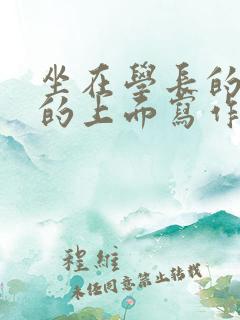 坐在學長的
的上面寫作
程維
未任同意禁止转载